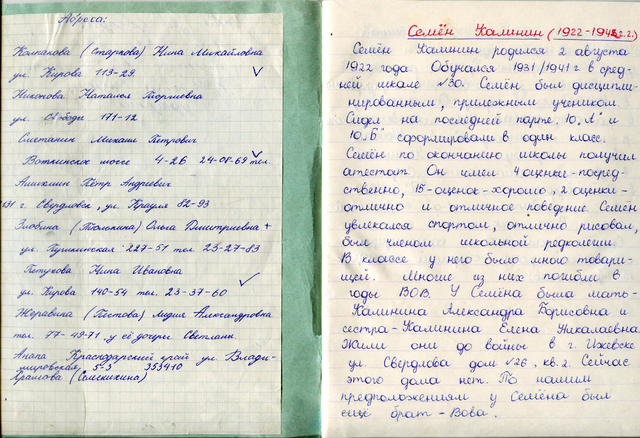 Адреса:
Колпакова (Старкова) Нина Михайловна
ул. Кирова 113-29.
Никонова Наталья Георгиевна
ул. Свободы 171-12
Сметанин Михаил Петрович
Воткинское шоссе 4-26 24-08-69 тел.
Анисмин Пётр Андреевич
г. Свердловск, ул. Крауля 82-93
Злобина (Ольга Дмитриевна +
ул. Пушкинская 227-51 тел 25-27-83
Петухова Нина Ивановна
ул. Кирова 140-54 тел. 23-37-60
Жеравина (Пестова) Лидия Александровна
тел. 77-49-71 у её дочери Светлани
Анапа Краснодарский край ул. Влади-
мировская, 5-3 353410
Храмова
Семён Калинин (1922-194 г.г.)
Семён Калинин родился 2 августа
1922 года Обучался 1931/1941 г в сред-
ней школе №30. Семён был дисципли-
нированным, прилежным учеником.
Сидел на последней парте. 10 „А" и
10 „Б" сформировали в один класс.
Семён по окончанию школы получил
аттестат. Он имел 4 оценки-посред-
ственно, 15-оценок-хорошо, 2 оценки-
отлично и отличное поведение. Семён
увлекался спортом, отлично рисовал,
был членом школьной редколегии.
В классе у него было много товари-
щей. Многие из них погибли в
годы ВОВ. У Семёна была мать-
Калинина Александра Борисовна и
сестра-Калинина Елена Николаевна.
Жили они до войны в г. Ижевске
ул. Свердлова дом №26, кв. 2. Сейчас
этого дома нет. По нашим
предположениям у Семёна был
ещё брат-Вова.